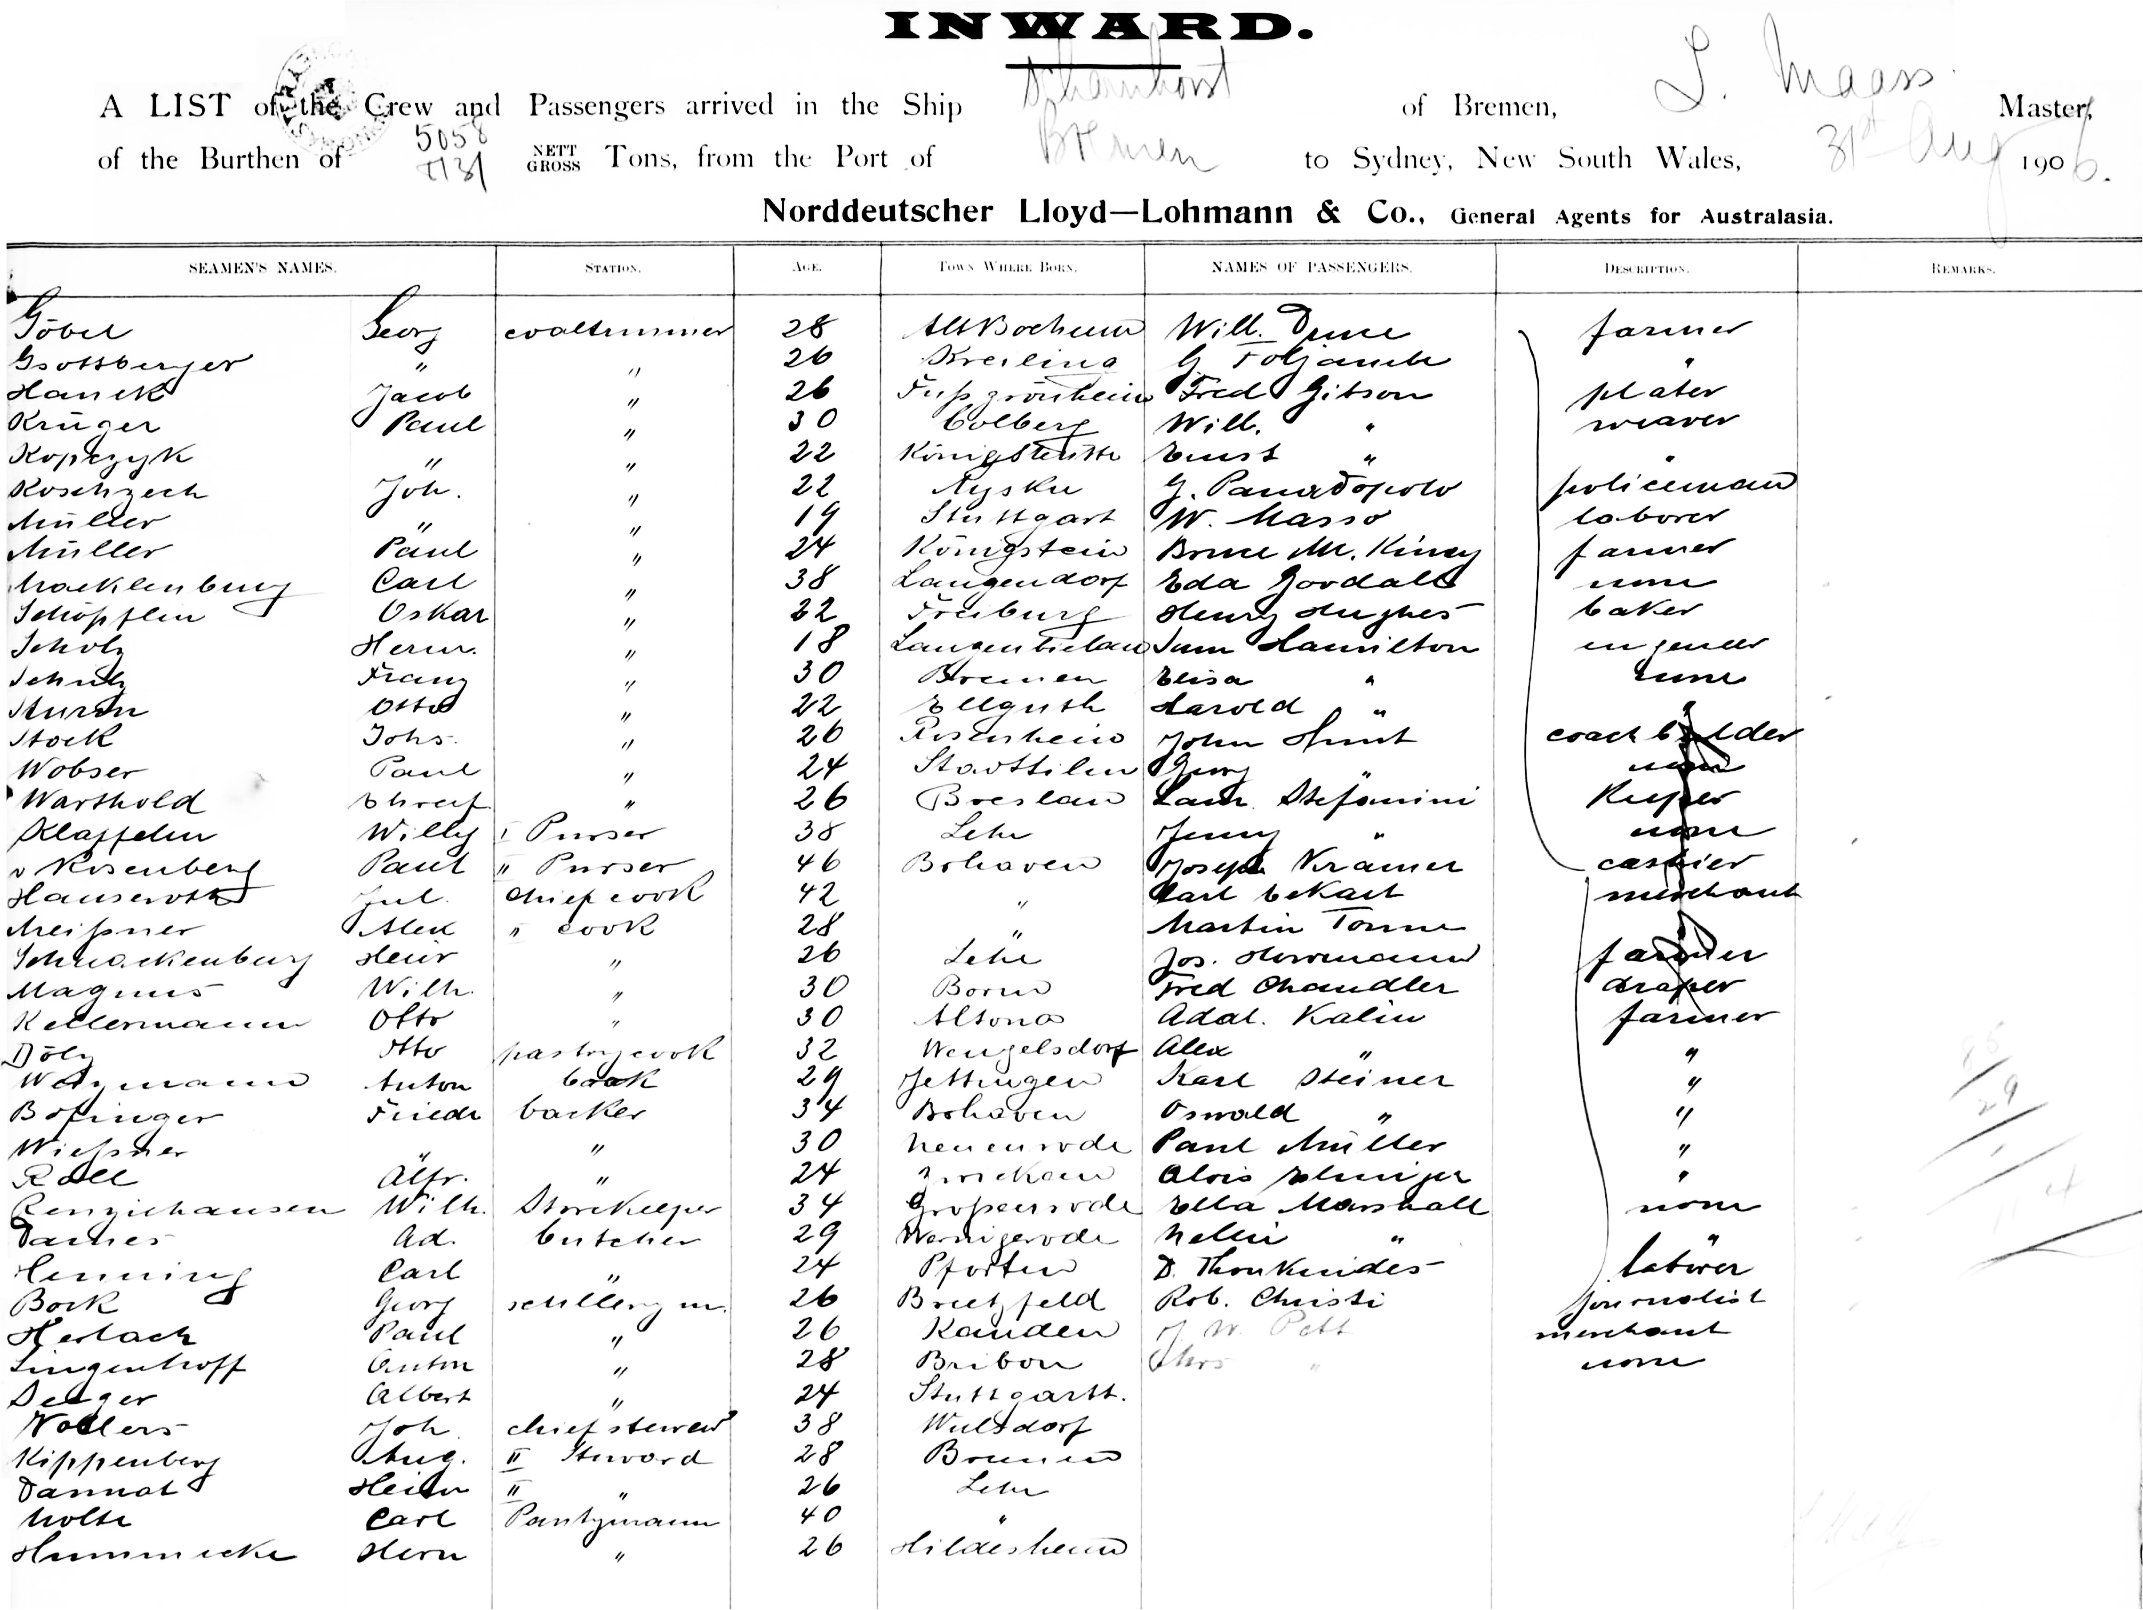 INWARD.
A LIST of the Crew and Passengers arrived in the Ship Scharnhorst of Bremen, L. Maass Master,
of the Burthen of 5058 8131 NETT GROSS Tons, from the Port of Bremen to Sydney, New South Wales, 31st Aug 1906.
Norddeutscher Lloyd—Lohmann & Co., General Agents for Australasia.
SEAMEN'S NAMES. STATION. AGE. TOWN WHERE BORN. NAMES OF PASSENGERS. DESCRIPTION. REMARKS.
Göbel Georg coaltrimmer 28 Alt Bochum Will. farmer
Gsottberger " " 26 Kreiling G. Foljambe "
Hanek Jacob " 26 Fußgönheim Fred Gibson plater
Krüger Paul " 30 Colberg Will. " weaver
Kopczyk " " 22 Königshütte Ernst " "
Koschzech Joh. " 22 G. policeman
Müller " " 19 Stuttgart W. Masso laborer
Müller Paul " 24 Königstein Bruce farmer
Macklenburg Carl " 38 Langendorf Eda Goodall none
Schöpflin Oskar " 22 Freiburg Henry Hughes baker
Scholz Herm. " 18 Langenbielau Sam Hamilton engeneer
Schulz Franz " 30 Bremen Elisa " none
Sturm Otto " 22 Ellguth Harold " "
Stock Johs. " 26 Rosenheim John Hunt coach bilder
Wobser Paul " 24 Stadtilm Georg " none
Warthold Ehrenf. " 26 Breslau Laur. Stefanini Keeper
Klaffehn Willy I Purser 38 Lehe Jenny " none
v Rosenberg Paul II Purser 46 Brhaven Joseph Kramer cashier
Hauseroth Jul. chief cook 42 " Carl Eckart merchant
Meißner Alex II cook 28 " Martin Tonne
Schnackenburg Heinr " 26 Lehe Jos. Herrmann farmer
Magnus Wilh. " 30 Born Fred Chandler draper
Kellermann Otto " 30 Altona Adal. Kalin farmer
Dölz Otto pastrycook 32 Wengelsdorf Alex " "
Weizmann Anton cook 29 Jettingen Karl Steiner "
Bofinger Friedr backer 34 Brhaven Oswald " "
Wießner " " 30 Neuenrode Paul Müller "
Rall Alfr. " 24 Zwickau Alois "
Renziehausen Wilh. Storekeeper 34 Großenrode Ella Marshall none
Dannes Ad. butcher 29 Wernigerode Nelli " "
Henning Carl " 24 Pforten D. Thoukuides laborer
Bock Georg schillery m. 26 Bretzfeld Rob. Christi journalist
Herbach Paul " 26 Kanden J W. Pett merchant
Lingenhoff Anton " 28 Bribon Chrs " none
Seeger Albert " 24 Stuttgartt.
Wollers Joh. chief steward 38 Wulsdorf
Kippenberg Aug. II Steward 28 Bremen
Dannat Heinr II " 26 Lehe
Nolte Carl Pantrymann 40 "
Hummecke Herm " 26 Hildesheim